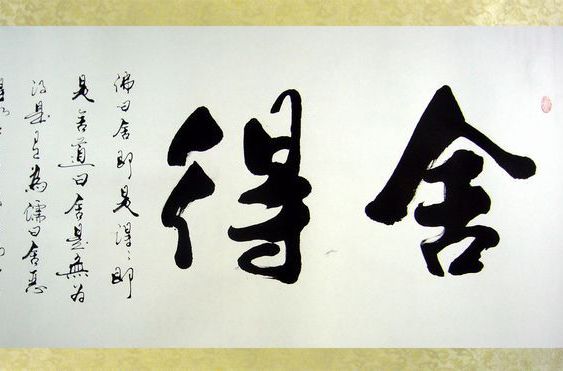 舍得
佛曰舍即是得々即
是舍道曰舍是無为
得是为儒曰舍恶